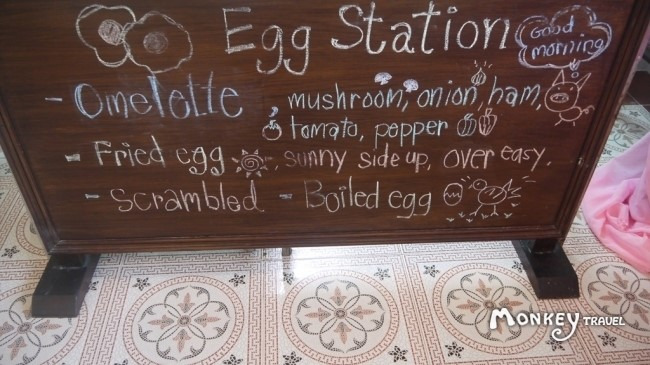 Egg Station
Good
morning
- Omelette , mushroom, onion, ham,
tomato, pepper
- Fried egg , sunny side up, over easy,
- scrambled - Boiled egg
MONKEY TRAVEL